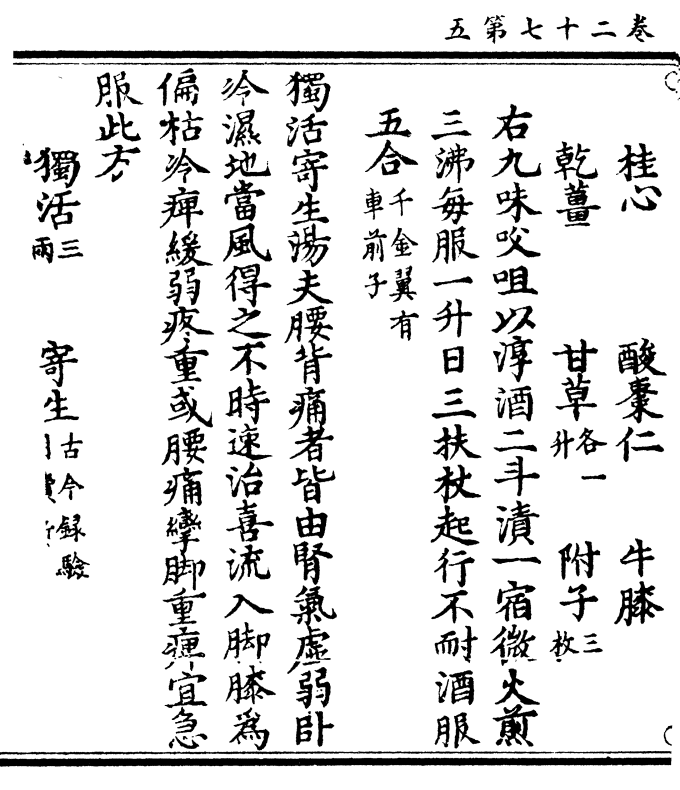 卷二十七第五
桂心 酸棗仁 牛膝
乾薑 甘草各一升 附子三枚
右九味咬咀以淳酒二斗漬一宿微火煎
三沸每服一升日三扶杖起行不耐酒服
五合千金翼有車前子
獨活寄生湯夫腰背痛者皆由腎氣虛弱卧
冷濕地當風得之不時速治喜流入脚膝為
偏枯冷痺緩弱疼重或腰痛攣脚重痺宜急
服此方
獨活三兩 寄生古今録驗